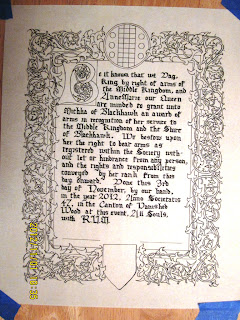 Be it known that we Dag,
King by right of arms of
the Middle Kingdom, and
AnneMarie our Queen
are minded to grant unto
of Blackhawk an award of
arms in recognition of her service to
the Middle Kingdom and the Shire
of Blackhawk. We bestow upon
her the right to bear arms as
registered within the Society with-
out let or hindrance from any person,
and the rights and responsibilities
conveyed by her rank from this
day onward. Done this 3rd
day of November, by our hand,
in the year 2012, Anno Societatis
47, in the Canton of Vanished
Wood at this event, All Souls,
with RUM.